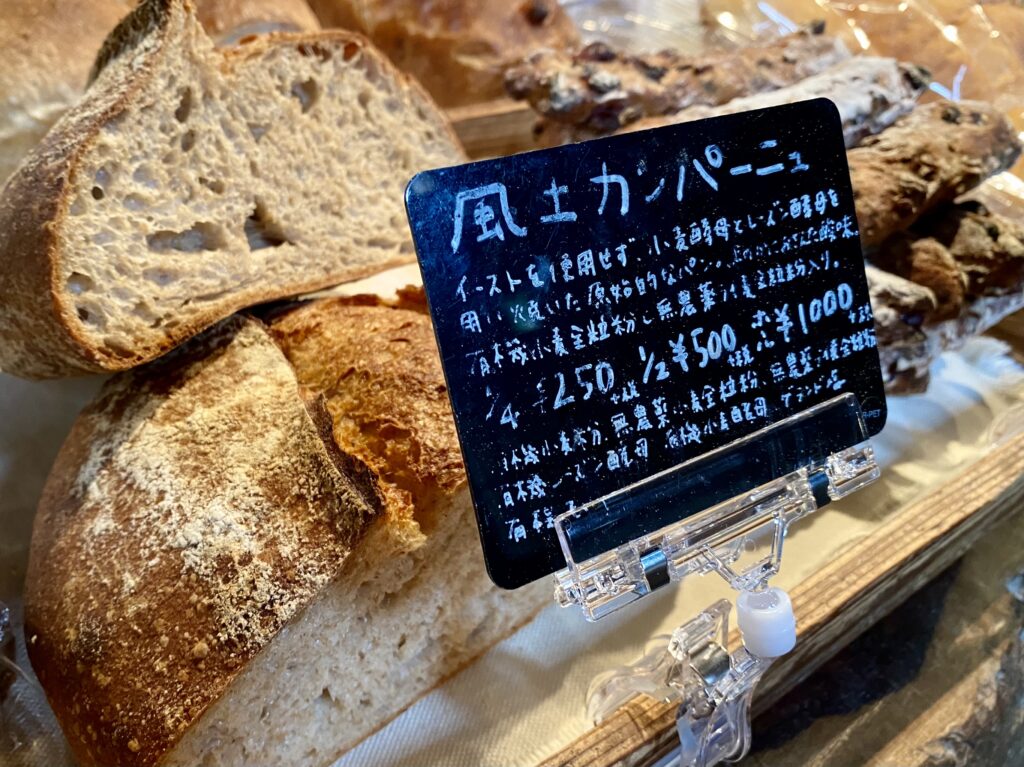 風土カンパーニュ
イーストを使用せず、小麦酵母とレーズン酵母を
用い焼いた原始的なパン。 酸味。
有機小麦全粒粉と無農薬小麦全粒粉入り。
1/4 ¥250+税 1/2 ¥500+税 ホール ¥1000+税
有機小麦粉、無農薬小麦全粒粉、無農薬小麦全粒粉
有機レーズン酵母 有機小麦酵母 ゲランド塩
有機
R-PET